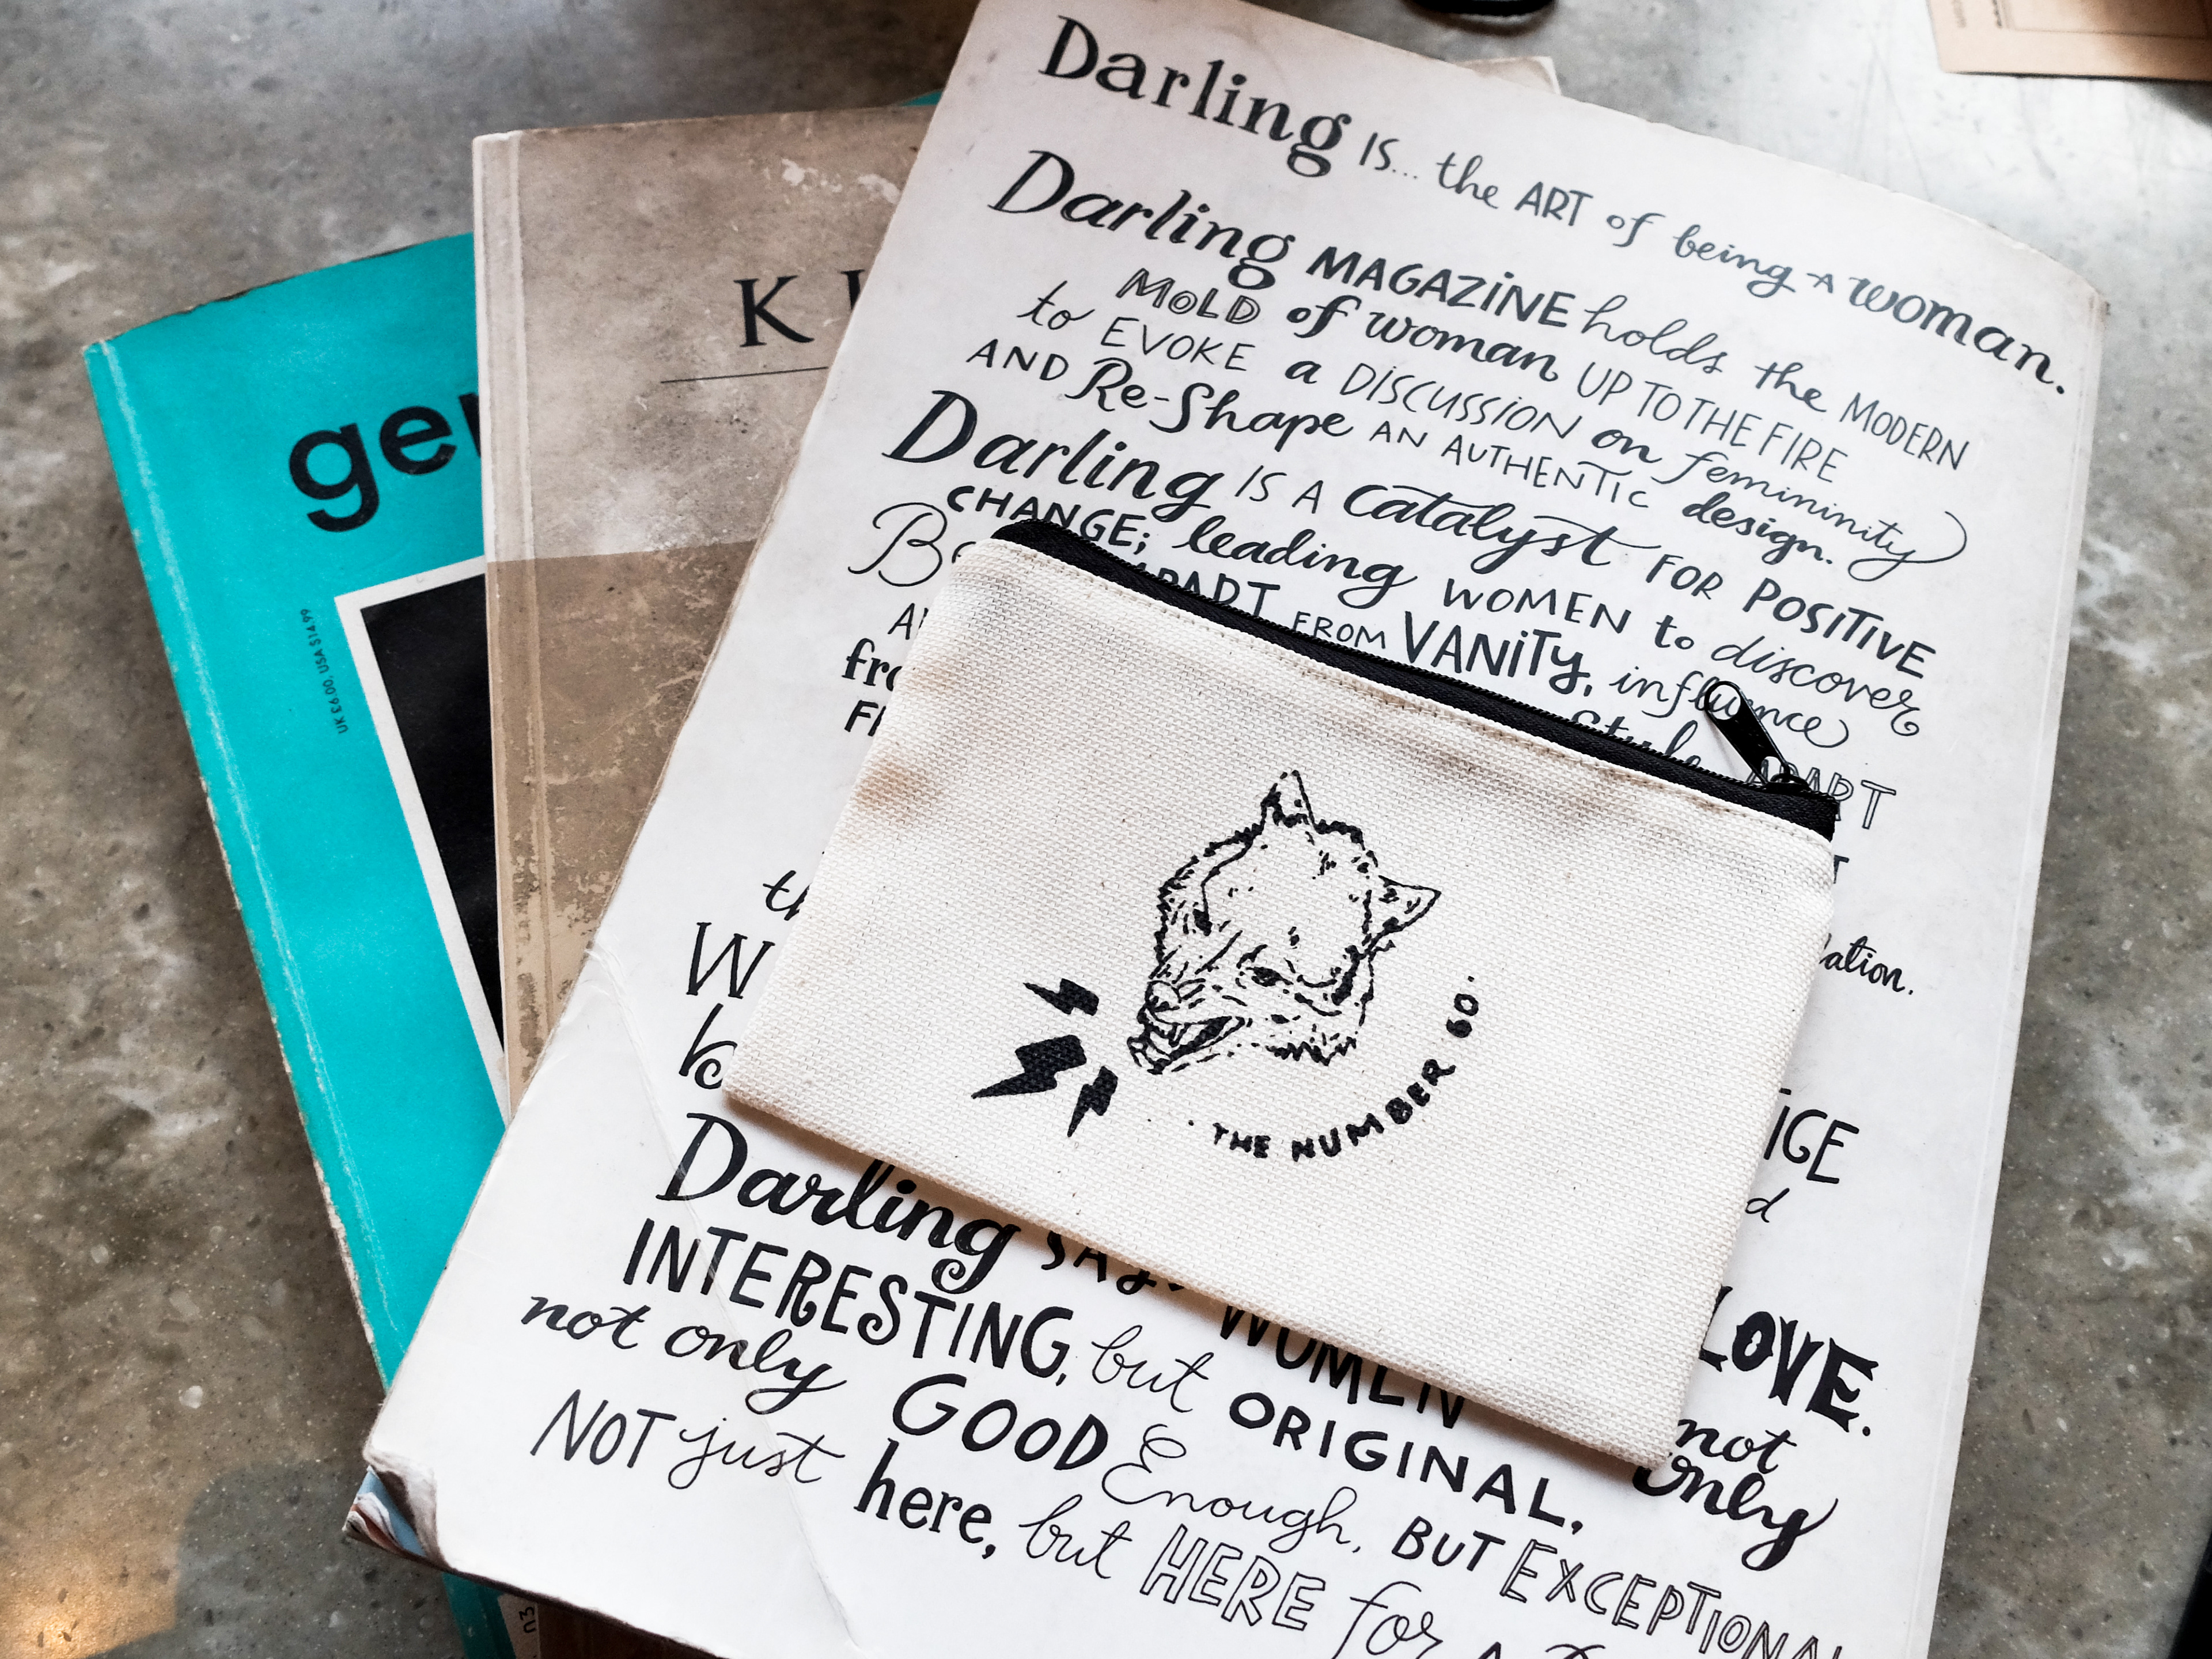 Darling IS... the ART of being A woman.
Darling MAGAZINE holds the MODERN
MOLD of woman UP TO THE FIRE
to EVOKE a DISCUSSION on femininity
AND Re-Shape AN AUTHENTIC design.
Darling IS A catalyst FOR POSITIVE
CHANGE; leading WOMEN to discover
APART FROM VANITY, influence
Style APART
Darling SAYS WOMEN LOVE.
INTERESTING, but ORIGINAL, not only
not only GOOD Enough, BUT EXCEPTIONAL
NOT just here, but HERE for
THE NUMBER 60
UK £6.00, USA $14.99